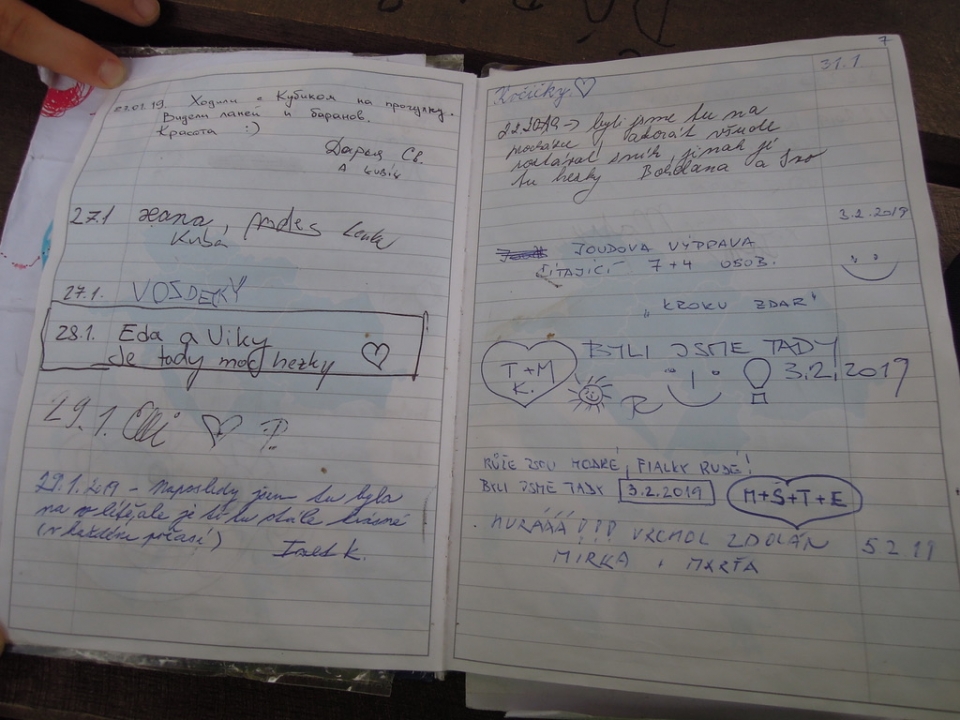 27.01.19. Ходили с Кубиком на прогулку.
Видели ланей и баранов.
Красота :)
Дарья Св.
27.1 Hana,
Kuba
27.1. VOSDECKÝ
28.1. Eda a Viky
Je tady moc hezky
29.1. Elli
29.1.2019 – Naposledy jsem tu byla
na v létě, ale je tu stále krásně
(v každém počasí)
7
31.1
Kočičky
byli jsme tu na
všude
sníh, jinak je
tu hezky Bohdana a
3.2.2019
JOUDOVA VÝPRAVA
ČÍTAJÍCÍ 7+4 OSOB.
„KROKU ZDAR"
BYLI JSME TADY
T+M
K.
R
3.2.2019
RŮŽE JSOU MODRÉ, FIALKY RUDÉ!
BYLI JSME TADY 3.2.2019 M+Š+T+E
HURÁÁÁ !!! VRCHOL ZDOLÁN 5 2.19
MIRKA , MARŤA